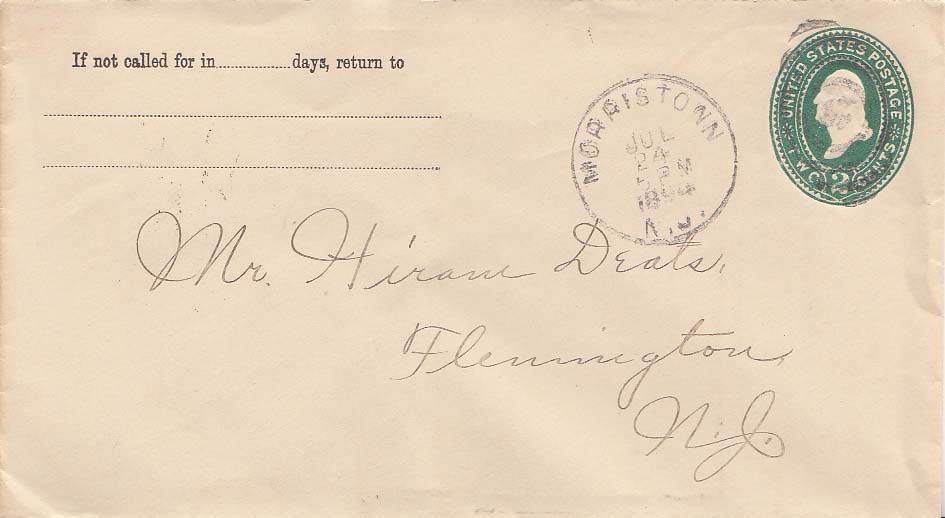 If not called for in..................days, return to
MORRISTOWN
JUL
24
5 PM
1894
N.J.
UNITED STATES POSTAGE
TWO 2 CENTS
Mr. Hiram Deats,
Flemington,
N.J.